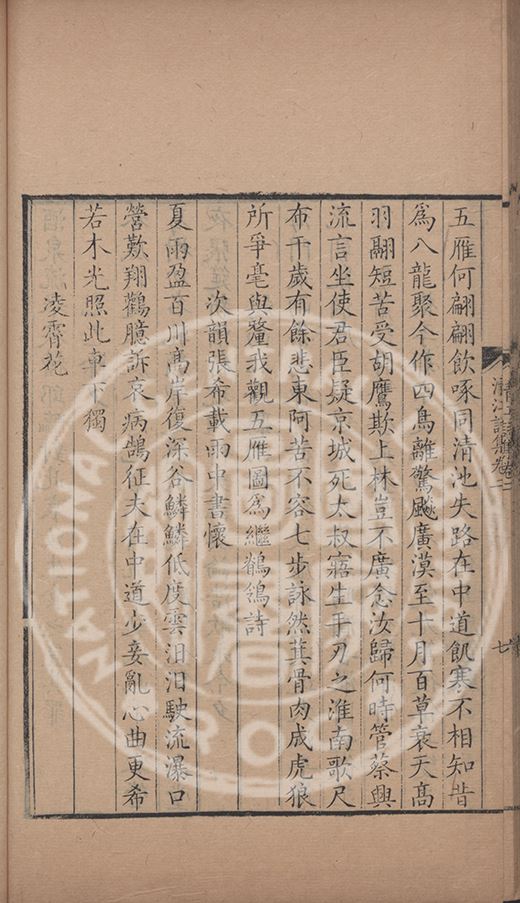 五雁何翩翩飲啄同清池失路在中道飢寒不相知昔
為八龍聚今作四鳥離驚飈廣漠至十月百草衰天高
羽翮短苦受胡鷹欺上林豈不廣念汝歸何時管蔡興
流言坐使君臣疑京城死太叔寤生手刃之淮南歌尺
布千歲有餘悲東阿苦不容七步詠然萁骨肉成虎狼
所爭毫與釐我觀五雁圖為繼鶺鴒詩
次韻張希載雨中書懷
夏雨盈百川高岸復深谷鱗鱗低度雲汨汨駛流瀑口
營歎翔鸛臆訴哀病鵠征夫在中道少妾亂心曲更希
若木光照此車下獨
凌霄花
清江詩集卷二
七
NATIONAL